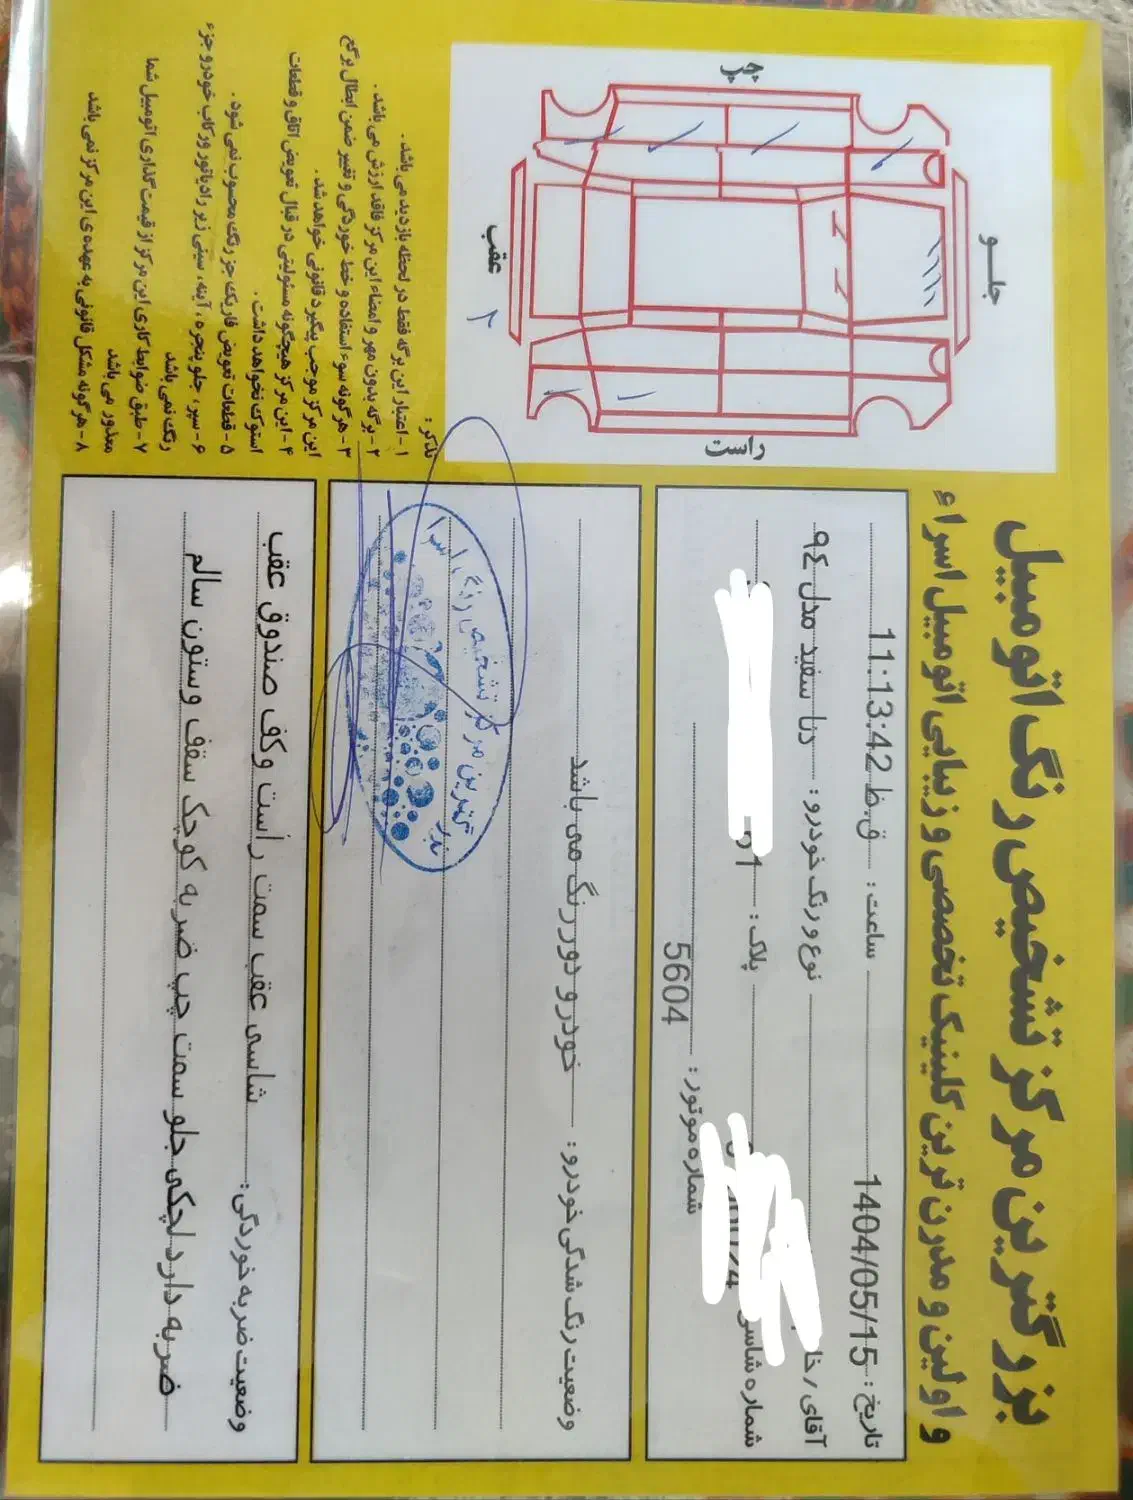 بزرگترین مرکز تشخیص رنگ اتومبیل
و اولین و مدرن ترین کلینیک تخصصی و زیبایی اتومبیل اسراء
تاریخ : 1404/05/15
ساعت : 11:13:42 ق.ظ
آقای / خا
نوع و رنگ خودرو : دنا سفید مدل ۹٤
شماره شاسی
پلاک :
شماره موتور :
5604
وضعیت رنگ شدگی خودرو : خودرو دور رنگ می باشد
وضعیت ضربه خوردگی : شاسی عقب سمت راست وکف صندوق عقب
ضربه دارد لچکی جلو سمت چپ ضربه کوچک سقف وستون سالم
چپ
جلو
عقب
راست
تذکر :
۱- اعتبار این برگه فقط در لحظه بازدید می باشد .
۲- برگه بدون مهر و امضاء این مرکز فاقد ارزش می باشد .
۳- هرگونه سوء استفاده و خط خوردگی و تغییر ضمن ابطال برگه
این مرکز موجب پیگیرد قانونی خواهد شد .
۴- این مرکز هیچگونه مسئولیتی در قبال تعویض اتاق و قطعات
استوک نخواهد داشت .
۵- قطعات تعویض فاریک جز رنگ محسوب نمی شود .
۶- سپر ، جلو پنجره ، آینه ، سینی زیر رادیاتور و رکاب خودرو جزء
رنگ نمی باشد
۷- طبق ضوابط کاری این مرکز از قیمت گذاری اتومبیل شما
معذور می باشد
۸- هرگونه مشکل قانونی به عهده ی این مرکز نمی باشد
بزرگترین مرکز تشخیص رنگ اسرا